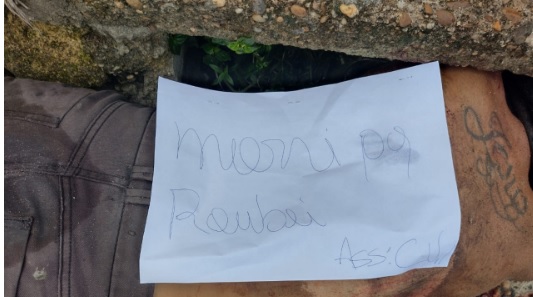 morri pq
Roubei
Ass: CV